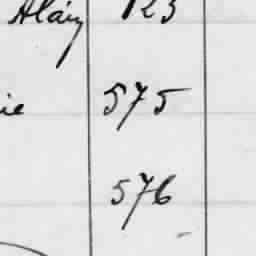 Aláij 123
ie 575
576